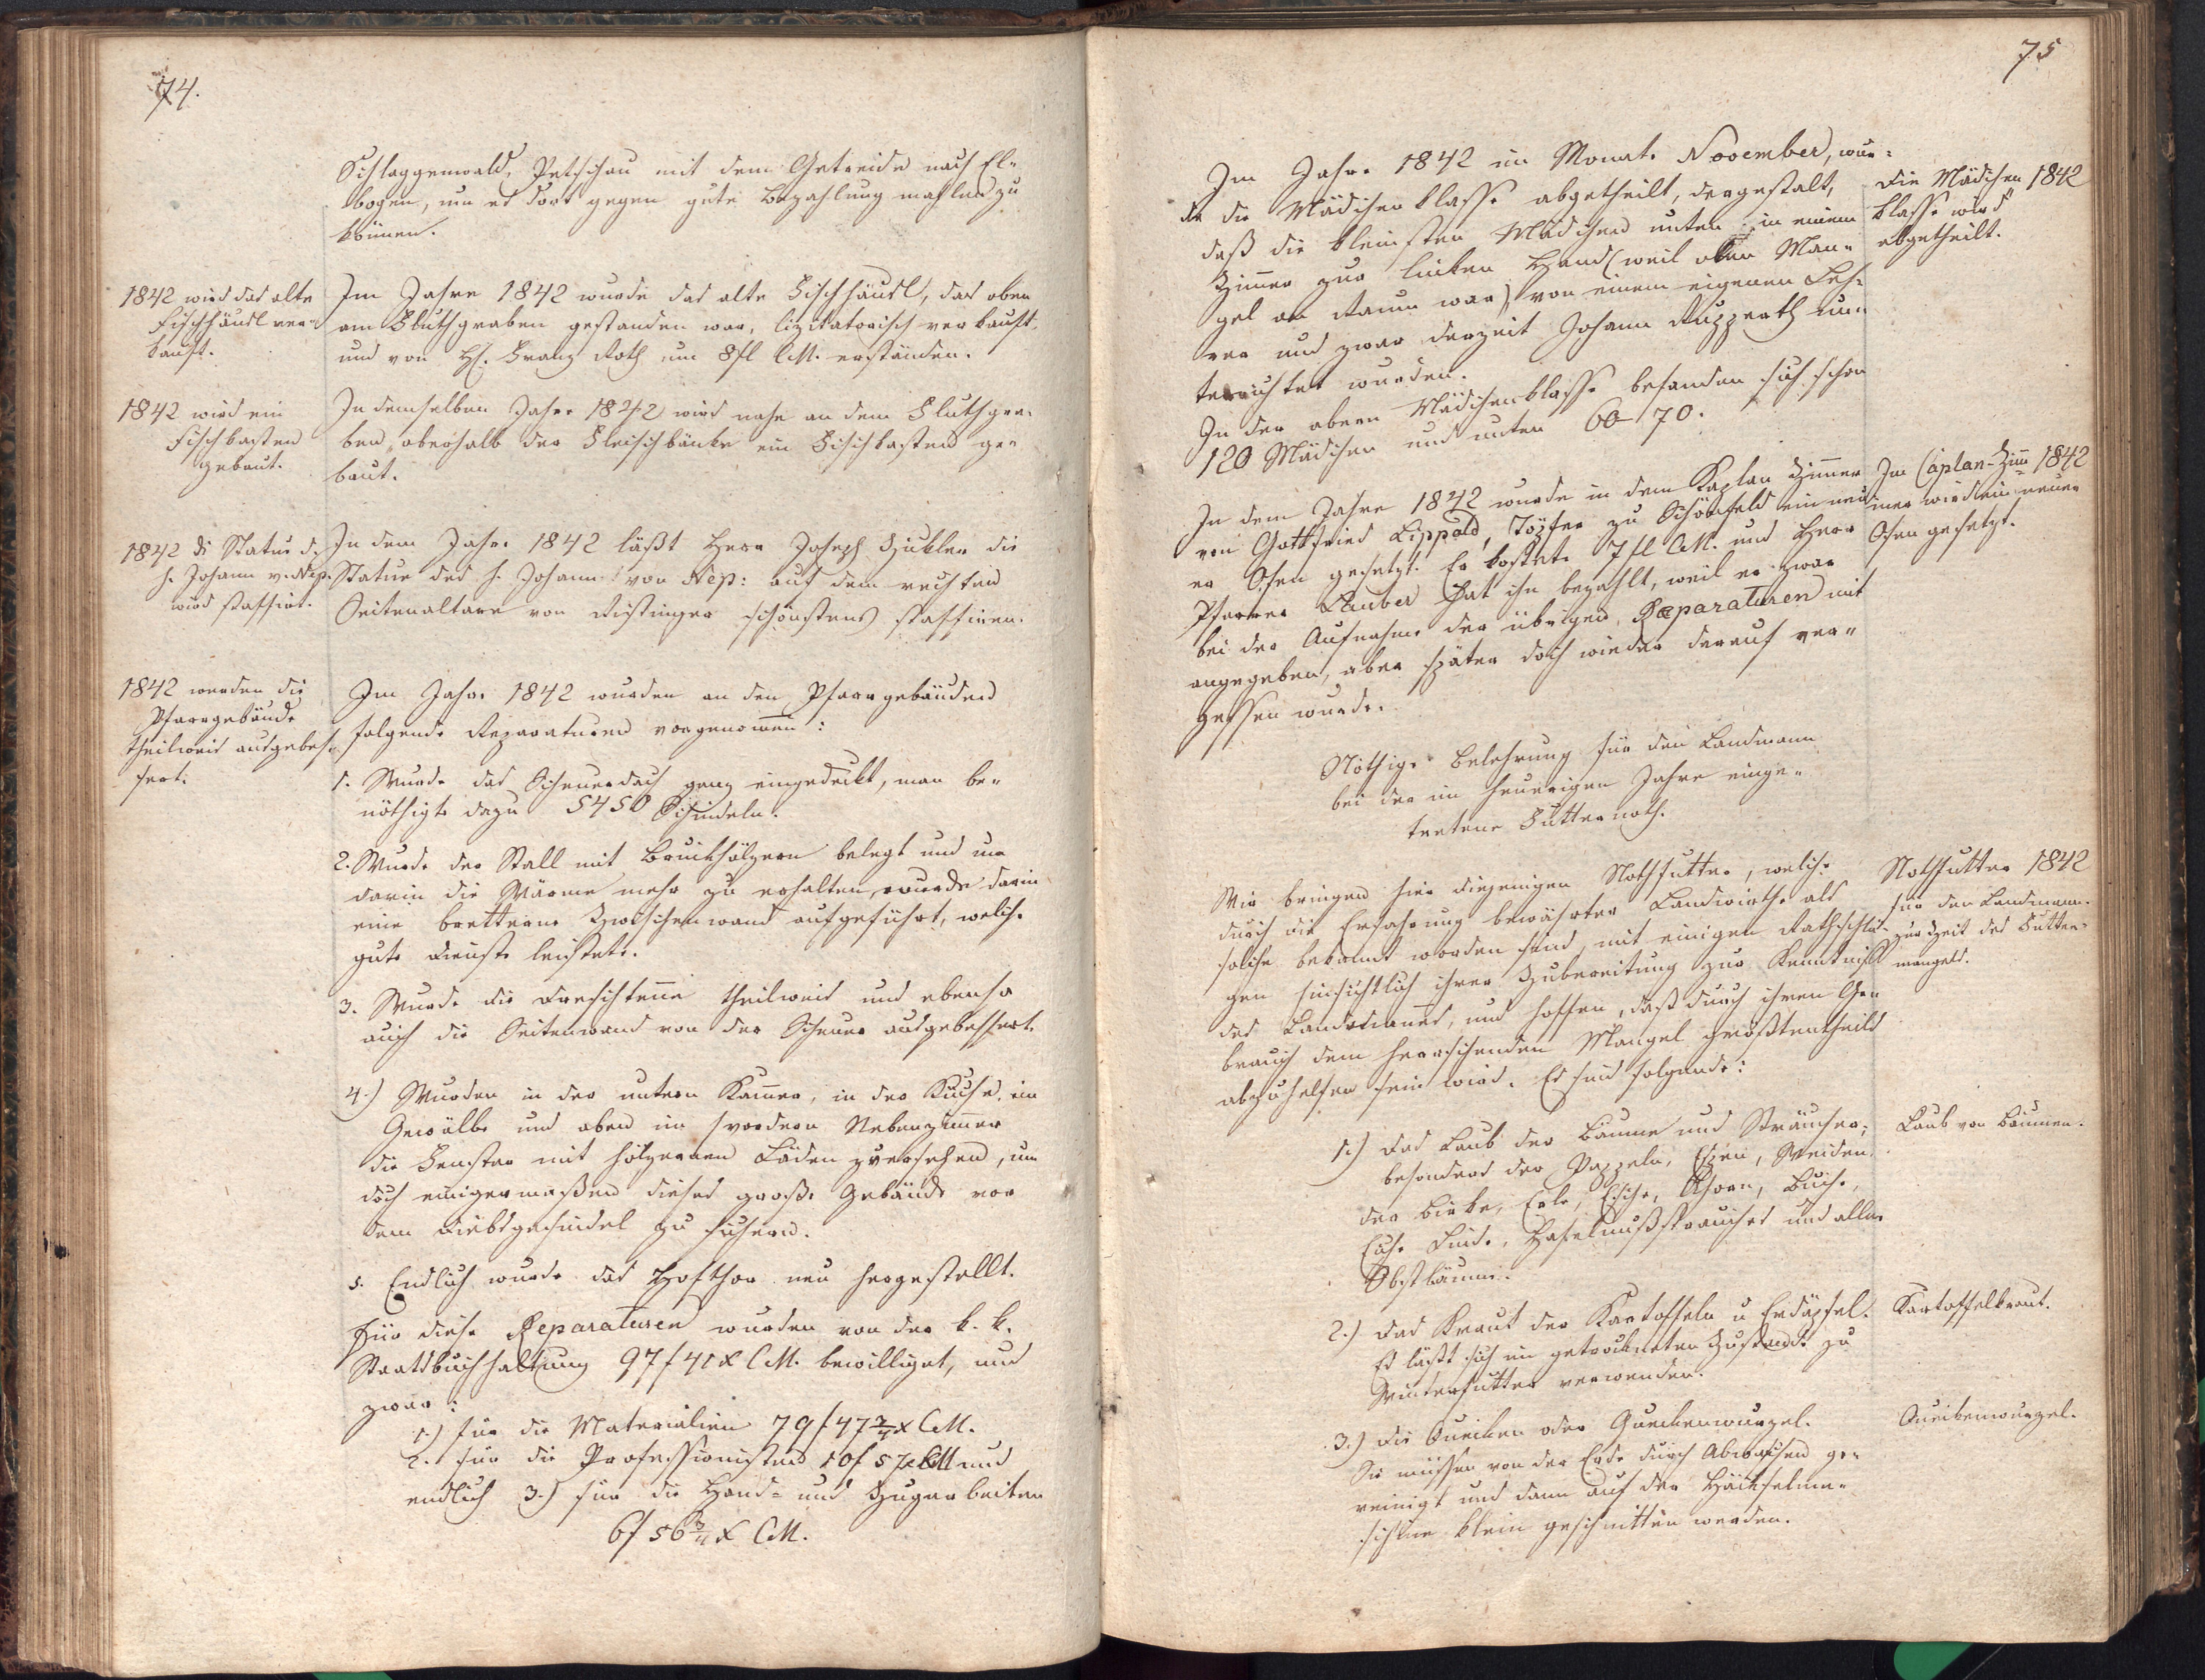 74.
Schlaggenwald, Petschau mit dem Getreide nach El-
bogen, um es dort gegen gute Bezahlung mahlen zu
können.
1842 wird das alte
Fischhäusl ver-
kauft.
Im Jahre 1842 wurde das alte Fischhäusl, das oben
am Fluthgraben gestanden war, lizitatorisch verkauft,
und von H. Franz Roth um 8 fl CM. erstanden.
1842 wird ein
Fischkasten
gebaut.
In demselben Jahre 1842 wird nahe an dem Fluthgra-
ben, oberhalb der Fleischbänke ein Fischkasten ge-
baut.
1842 di Statue d.
h. Johann v. Nep.
wird staffirt.
In dem Jahre 1842 läßt Herr Joseph Zickler die
Statue des h. Johann von Nep: auf dem rechten
Seitenaltare von schönstens staffiren.
1842 werden die
Pfarrgebäude
theilweis ausgebes-
sert.
Im Jahre 1842 wurden an den Pfarrgebäuden
folgende Reparaturen vorgenommen:
1. Wurde das Scheuerdach ganz eingedeckt, man be-
nöthigte dazu 5450 Schindeln.
2. Wurde der Stall mit Bruckhölzern belegt und um
darin die Wärme mehr zu erhalten, wurde darin
eine bretterne Zwischenwand aufgeführt, welche
gute Dienste leistete.
3. Wurde die Dreschtenne theilweis und ebenso
auch die Seitenwand von der Scheuer ausgebessert.
4.) Wurden in der untern Kammer, in der Küche, im
Gewölbe und oben im vordern Nebenzimmer
die Fenster mit hölzernen Läden versehen, um
doch einigermaßen dieses große Gebäude vor
dem Diebsgesindel zu sichern.
5. Endlich wurde das Hofthor neu hergestellt.
Für diese Reparaturen wurden von der k. k.
Staatsbuchhaltung 97 f 41 x CM. bewilliget, und
zwar:
1.) für die Materialien 79 f 47 2/4 x CM.
2. für die Professionisten 10 f 57 x CM und
endlich 3.) für die Hand- und Zugarbeiten
6 f 56 3/4 x CM.
75
Im Jahre 1842 im Monate November, wur-
de die Mädchenklasse abgetheilt, dergestalt,
daß die kleinsten Mädchen unten in einem
Zimmer zur linken Hand (weil oben Man-
gel an Raum war) von einem eigenen Leh-
rer und zwar derzeit Johann Rupperth un-
terrichtet wurden.
In der obern Mädchenklasse befanden sich schon
120 Mädchen und unten 60-70.
Die Mädchen 1842
klasse wird
abgetheilt.
In dem Jahre 1842 wurde in dem Kaplan Zimmer
von Gottfried Lippold, Töpfer zu Schönfeld ein neu-
er Ofen gesetzt. Er kostete 7 fl CM. und Herr
Pfarrer Lauber hat ihn bezahlt, weil er zwar
bei der Aufnahme der übrigen Reparaturen mit
angegeben, aber später doch wieder darauf ver-
gessen wurde.
Im Caplan-Zim 1842
mer wird ein neuer
Ofen gesetzt.
Nöthige Belehrung für den Landmann
bei der im heurigen Jahre einge-
tretene Futternoth.
Wir bringen hier diejenigen Nothfutter, welche
durch die Erfahrung bewährter Landwirthe als
solche bekannt worden sind, mit einigen Rathschlä-
gen hinsichtlich ihrer Zubereitung zur Kenntniß
des Landmannes, und hoffen, daß durch ihren Ge-
brauch dem herrschenden Mangel größtentheils
abzuhelfen sein wird. Es sind folgende:
Nothfutter 1842
für den Landmann
zur Zeit des Futter-
mangels.
1.) Das Laub der Bäume und Sträucher,
besonders der Pappeln, Espen, Weiden,
der Birke, Erle, Esche, Ahorn, Buche,
Eiche Linde, Haselnußstrauches und aller
Obstbäume.
Laub von Bäumen.
2.) Das Kraut der Kartoffeln u Erdäpfel.
Es läßt sich im getrockneten Zustande zu
Winterfutter verwenden.
Kartoffelkraut.
3.) Die Quecken oder Queckenwurzel.
Sie müssen von der Erde durch Abwaschen ge-
reinigt und dann auf der Häckselma-
schine klein geschnitten werden.
Queckenwurzel.